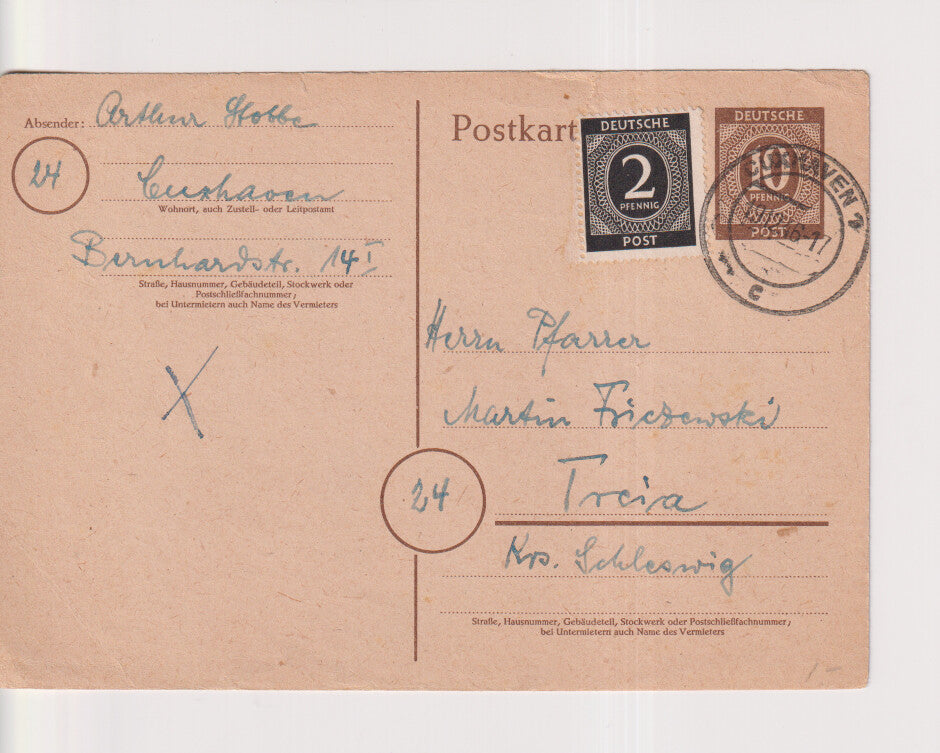 Absender: Arthur Stobbe
24
Cuxhaven
Wohnort, auch Zustell- oder Leitpostamt
Bernhardstr. 14 I
Straße, Hausnummer, Gebäudeteil, Stockwerk oder
Postschließfachnummer;
bei Untermietern auch Name des Vermieters
Postkart
DEUTSCHE
2
PFENNIG
POST
DEUTSCHE
10
PFENNIG
POST
CUXHAVEN 2
c
Herrn Pfarrer
Martin
24
Treia
Krs. Schleswig
Straße, Hausnummer, Gebäudeteil, Stockwerk oder Postschließfachnummer;
bei Untermietern auch Name des Vermieters